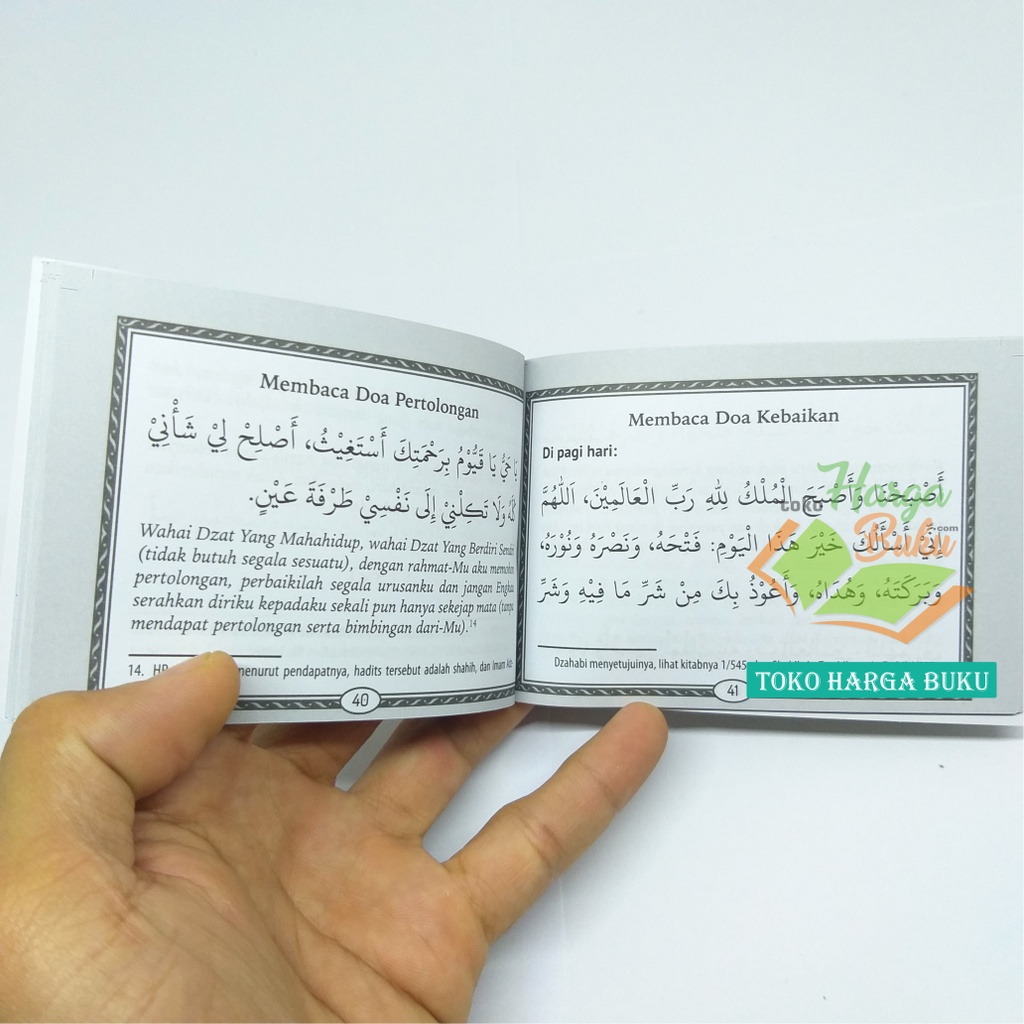 Membaca Doa Pertolongan
يَا حَيُّ يَا قَيُّوْمُ بِرَحْمَتِكَ أَسْتَغِيْثُ، أَصْلِحْ لِيْ شَأْنِيْ
كُلَّهُ وَلَا تَكِلْنِيْ إِلَى نَفْسِيْ طَرْفَةَ عَيْنٍ.
Wahai Dzat Yang Mahahidup, wahai Dzat Yang Berdiri Sendiri
(tidak butuh segala sesuatu), dengan rahmat-Mu aku memohon
pertolongan, perbaikilah segala urusanku dan jangan Engkau
serahkan diriku kepadaku sekali pun hanya sekejap mata (tanpa
mendapat pertolongan serta bimbingan dari-Mu).14
14. menurut pendapatnya, hadits tersebut adalah shahih, dan Imam
40
Membaca Doa Kebaikan
Di pagi hari:
أَصْبَحْنَا وَأَصْبَحَ الْمُلْكُ لِلهِ رَبِّ الْعَالَمِيْنَ، اَللّٰهُمَّ
إِنِّيْ أَسْأَلُكَ خَيْرَ هَذَا الْيَوْمِ: فَتْحَهُ، وَنَصْرَهُ وَنُوْرَهُ،
وَبَرَكَتَهُ، وَهُدَاهُ، وَأَعُوْذُ بِكَ مِنْ شَرِّ مَا فِيْهِ وَشَرِّ
Dzahabi menyetujuinya, lihat kitabnya 1/545,
41
toko Harga Buku .com
TOKO HARGA BUKU